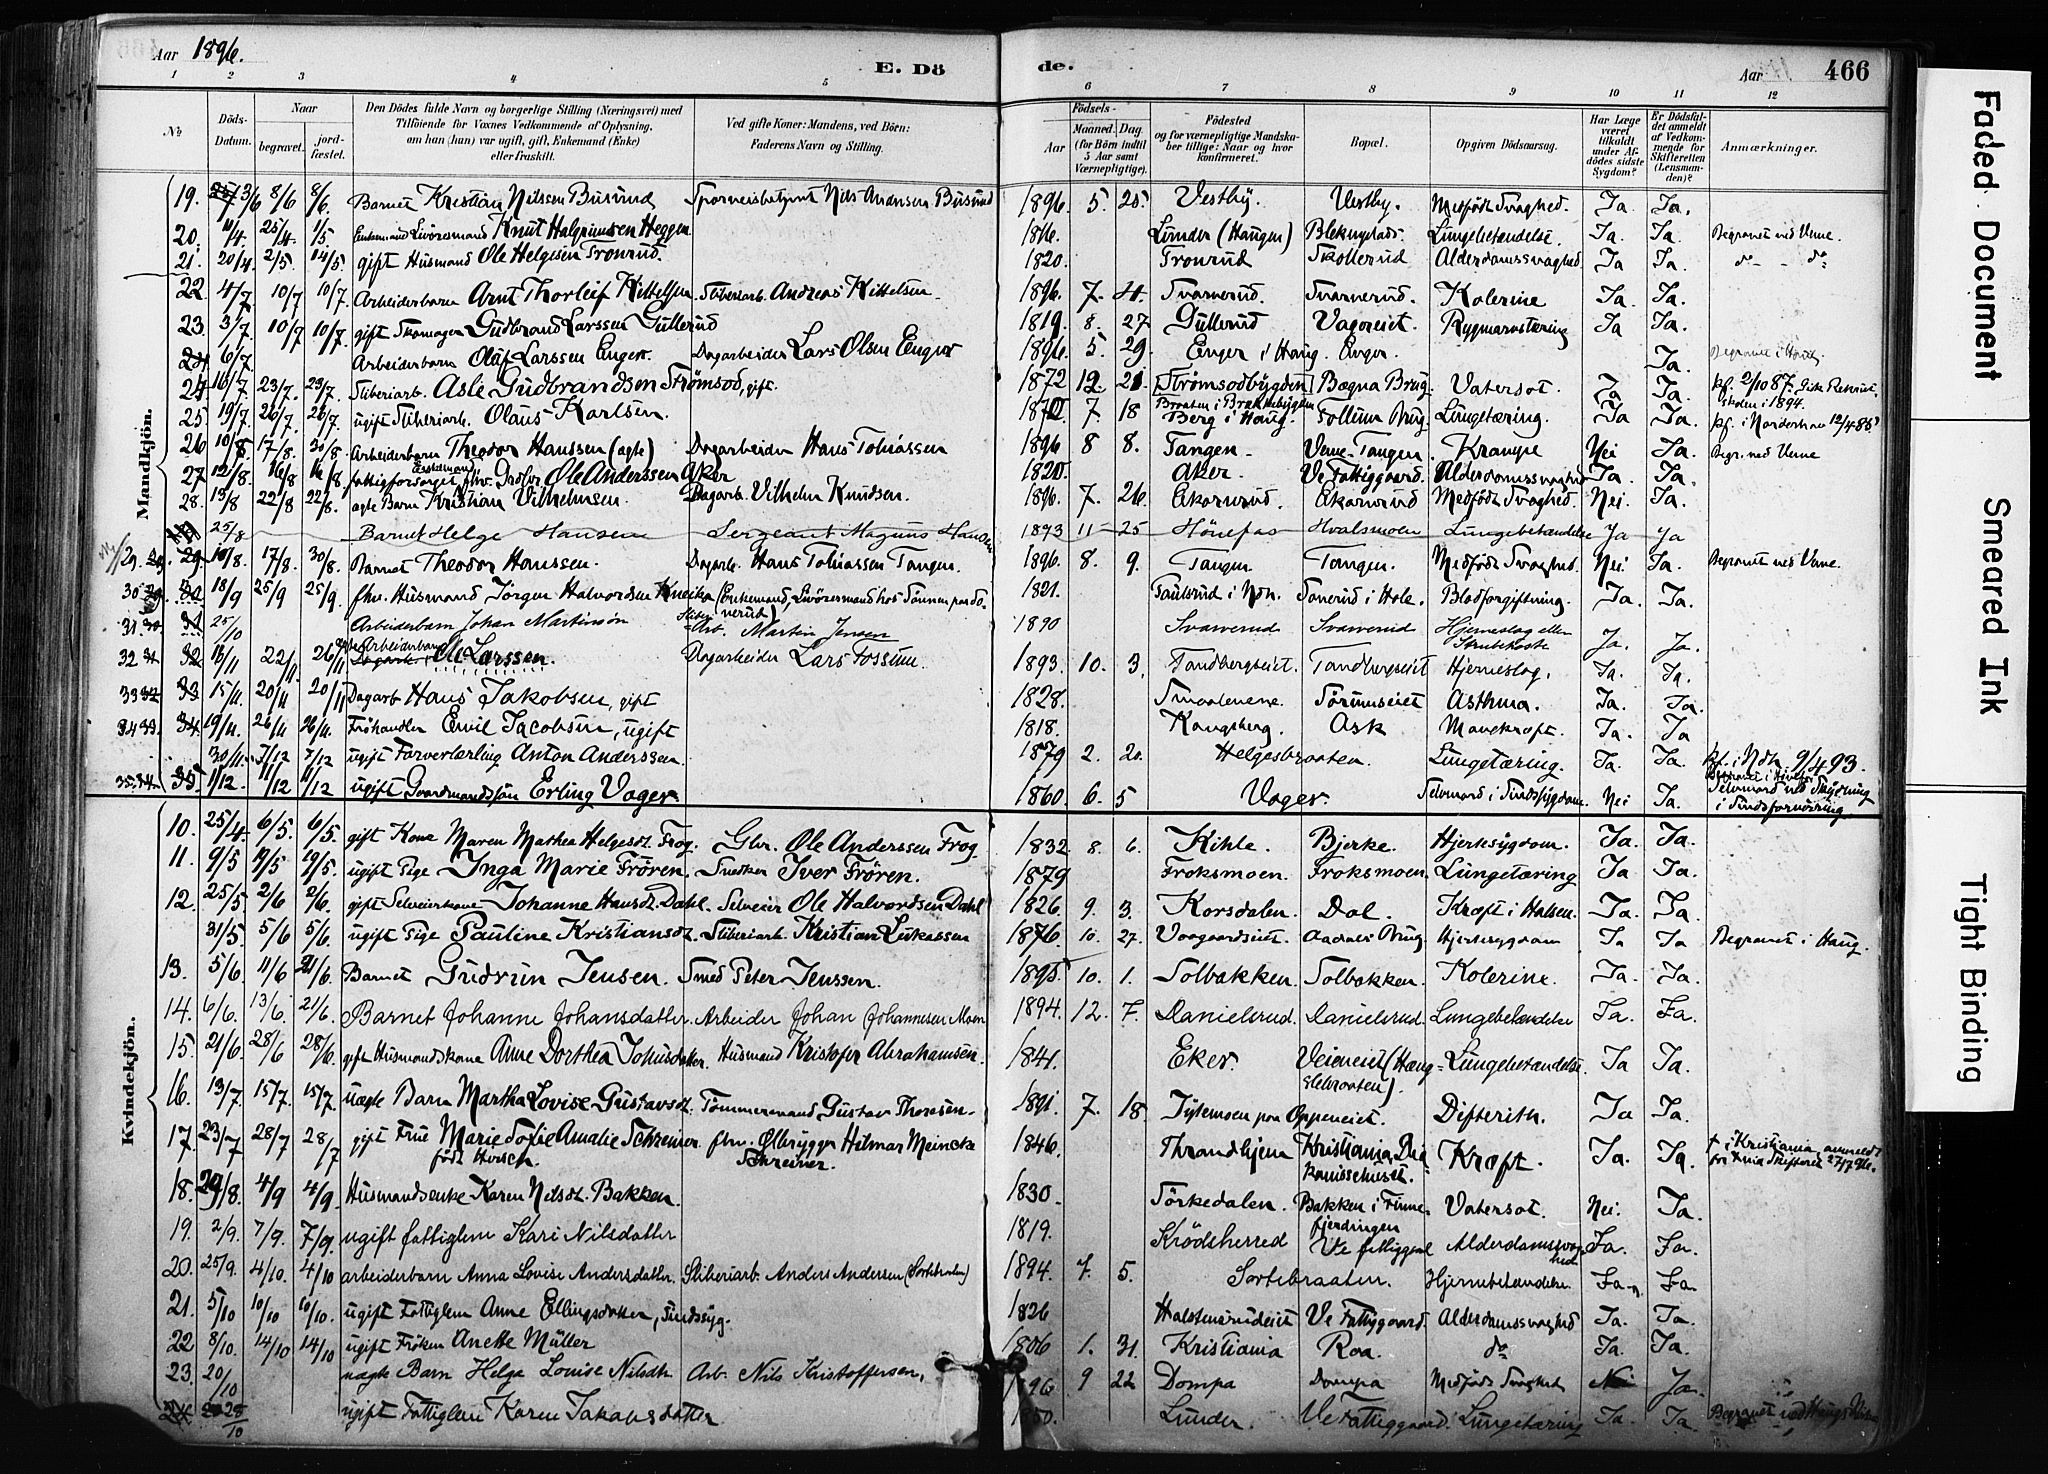 Aar 1896.
E. Dö de.
Aar
466
1 2 3 4 5 6 7 8 9 10 11 12
No
Döds-Datum.
Naar
begravet.
jord-fæstet.
Den Dödes fulde Navn og borgerlige Stilling (Næringsvei) med
Tilföiende for Voxnes Vedkommende af Oplysning,
om han (hun) var ugift, gift, Enkemand (Enke)
eller fraskilt.
Ved gifte Koner: Mandens, ved Börn:
Faderens Navn og Stilling.
Födsels-
Aar
Maaned. Dag.
(for Börn indtil
5 Aar samt
Værnepligtige).
Födested
og for værnepligtige Mandska-
ber tillige: Naar og hvor
konfirmeret.
Bopæl.
Opgiven Dödsaarsag.
Har Læge
været
tilkaldt
under Af-
dödes sidste
Sygdom?
Er Dödsfal-
det anmeldt
af Vedkom-
mende for
Skifteretten
(Lensman-
den)?
Anmærkninger.
Mandkjön.
19. 3/6 8/6 8/6. Barnet Kristian Nilssen Busund Nils Andersen Busund 1896. 5. 25. Vestby. Vestby. Medfödt Svaghed. Ja. Ja.
20. 11/4. 25/4. 1/5. Enkemand Knut Halgrimsen Heggen 1816. Lunder (Haugen) Lungebetændelse. Ja. Ja. Begravet ved Verne.
21. 20/4. 2/5. 14/5. gift Husmand Ole Helgesen Tronrud. 1820. Tronrud Skollerud Alderdomssvaghed Ja Ja. do - do
22. 4/7. 10/7 10/7. Arbeiderbarn Arnt Thorleif Kittelsen Sliberiarb. Andreas Kittelsen. 1896. 7. 4. Svarverud. Svarverud. Kolerine Ja. Ja.
23. 3/7. 10/7 10/7. gift Skomager Gudbrand Larssen Gullerud 1819. 8. 27 Gullerud Vagereiet. Rygmarvstæring Ja Ja.
6/7. Arbeiderbarn Olaf Larssen Enger. Dagarbeider Lars Olsen Enger 1896. 5. 29. Enger i Haug. Enger. Ja.
24. 16/7. 23/7. 23/7. Sliberiarb. Asle Gudbrandsen Strømsod, gift. 1872 12. 21. [Strømsodbygden] Bægna Brug. Vatersot. Ja Ja. kf. 2/10 87. i 1894.
25. 19/7. 26/7. 26/7. ugift Sliberiarb. Olaus Karlsen. 7. 18 Berg i Haug. Follum Brug. Lungetæring. Ja Ja. kf. i Norderhov 12/4 85
26 10/8. 17/8. 30/8. Arbeiderbarn Theodor Hanssen (ægte) Dagarbeider Hans Tobiassen 1896 8 8. Tangen Verne-Tangen. Krampe Nei Ja. Begr. ved Verne
27 12/8. 16/8 16/8. Ole Anderssen Aker 1820. Aker. Ve Fattiggaard. Alderdomssvaghed Ja. Ja.
28. 13/8 22/8 22/8. ægte Barn Kristian Vilhelmsen. Dagarb. Vilhelm Knudsen. 1896. 7. 26. Ekornrud. Ekornrud Medfödt Svaghed. Nei. Ja.
25/8 Barnet Helge Hansen Sergeant Magnus Hansen 1893 11 25 Hönefos Hvalsmoen Lungebetændelse Ja Ja
29. 10/8. 17/8. 30/8. Barnet Theodor Hanssen. Dagarb. Hans Tobiassen Tangen. 1896. 8. 9. Tangen Tangen. Medfödt Svaghed. Nei. Ja. Begravet ved Verne.
30 18/9 25/9 25/9. Husmand Jörgen Halvordsen Kneika (Enkemand, hos Sönnen paa Sonerud) 1821. Sonerud i Hole. Blodforgiftning. Ja. Ja.
31 25/10 Arbeiderbarn Johan Martinsen Sliber-Arb. Martin Jensen 1890 Svarverud Svarverud Hjerneslag eller Strubehoste Ja. Ja.
32 16/11 22/11 26/11 Arbeiderbarn Ole Larssen. Dagarbeider Lars Fossum. 1893. 10. 3. Tandbergseiet. Tandbergseiet Hjerneslag. Ja. Ja.
33 15/11. 20/11 20/11 Dagarb Hans Jakobsen, gift 1828. Smaalenene. Asthma. Ja. Ja.
34 19/11. 26/11 26/11. Fröhandler Emil Jacobsen, ugift 1818. Kongsberg. Ask Mavekræft. Ja. Ja
30/11. 7/12 7/12 ugift Farverlærling Anton Anderssen. 1879 2. 20. Helgesbraaten. Lungetæring. Ja. Ja. kf. i Ndh. 9/4 93.
35. 1/12. 11/12 11/12 ugift Gaardmandssön Erling Vager 1860. 6. 5 Vager. Selvmord i Sindssygdom. Nei Ja. Selvmord ved Skydning i Sindsforvirring
Kvindekjön.
10. 25/4. 6/5. 6/5. gift Kone Maren Mathea Helgesdt. Frog. Gbr. Ole Anderssen Frog. 1832. 8. 6. Kihle. Bjerke. Hjertesygdom. Ja. Ja.
11. 9/5 19/5 19/5. ugift Pige Inga Marie Frören. Snedker Iver Frören. 1879 Froksmoen. Froksmoen. Lungetæring Ja Ja.
12. 25/5. 2/6 2/6. gift Selveierkone Johanne Hansdt. Dahl. Selveier Ole Halvordsen Dahl 1826. 9. 3. Korsdalen. Dal. Kræft i Halsen. Ja. Ja.
31/5. 5/6 5/6. ugift Pige Pauline Kristiansdt. Sliberiarb. Kristian Lukassen 1876. 10. 27. Aadals Brug. Hjertesygdom Ja Ja Begravet i Haug.
13. 5/6. 11/6 21/6. Barnet Gudrun Jensen. Smed Peter Jenssen. 1895. 10. 1. Solbakken. Solbakken. Kolerine. Ja. Ja.
14. 6/6. 13/6. 21/6. Barnet Johanne Johansdatter Arbeider Johan Johannesen Moen 1894. 12. 7. Danielsrud. Danielsrud. Lungebetændelse Ja. Ja.
15. 21/6. 28/6 28/6. gift Husmandskone Anne Dorthea Johnsdatter. Husmand Kristofer Abrahamsen. 1841. Eker. Lungebetændelse. Ja Ja.
16. 13/7. 15/7. 15/7. uægte Barn Martha Lovise Gustavsdt. Tömmermand Gustav Thoresen. 1891. 7. 18. Difterith. Ja Ja.
17. 23/7 28/7 28/7 gift Frue Marie Sofie Amalie Schreiner fhv. Ølbrygger Hilmar Meincke Schreiner. 1846. Throndhjem Kristiania, Diakonissehuset. Kræft. Ja. Ja. † i Kristiania, anmeldt for Kr.ania Skifteret 27/7 96.
18. 29/8. 4/9 4/9. Husmandsenke Karen Nilsdt. Bakken. 1830. Sörkedalen. Bakken i Finnefjerdingen Vatersot. Nei. Ja.
19. 2/9. 7/9. 7/9. ugift fattiglem Kari Nilsdatter 1819. Krödsherred Ve fattiggaard Alderdomssvaghed Ja. Ja.
20. 25/9. 4/10. 4/10 arbeiderbarn Anna Lovise Andersdatter. Sliberiarb. Anders Andersen (Sortebraaten) 1894. 7. 5. Sortebraaten. Hjernebetændelse Ja Ja
21. 5/10 10/10 10/10. ugift Fattiglem Anne Ellingsdatter, Sindssyg. 1826 Ve Fattiggaard. Alderdomssvaghed Ja. Ja.
22 8/10. 14/10 14/10 ugift Fröken Anette Müller 1806 1. 31. Kristiania Roa. do Ja. Ja.
23. 20/10 uægte Barn Helga Louise Nilsdtr. Arb. Nils Kristoffersen. 1896 9 22 Dompa Dompa Medfödt Svaghed Nei Ja.
28/10 ugift Fattiglem Karen Jakobsdatter 1850. Lunder. Ve Fattiggaard. Lungetæring Ja. Ja. Begravet ved Haugs Kirke
Faded Document
Smeared Ink
Tight Binding